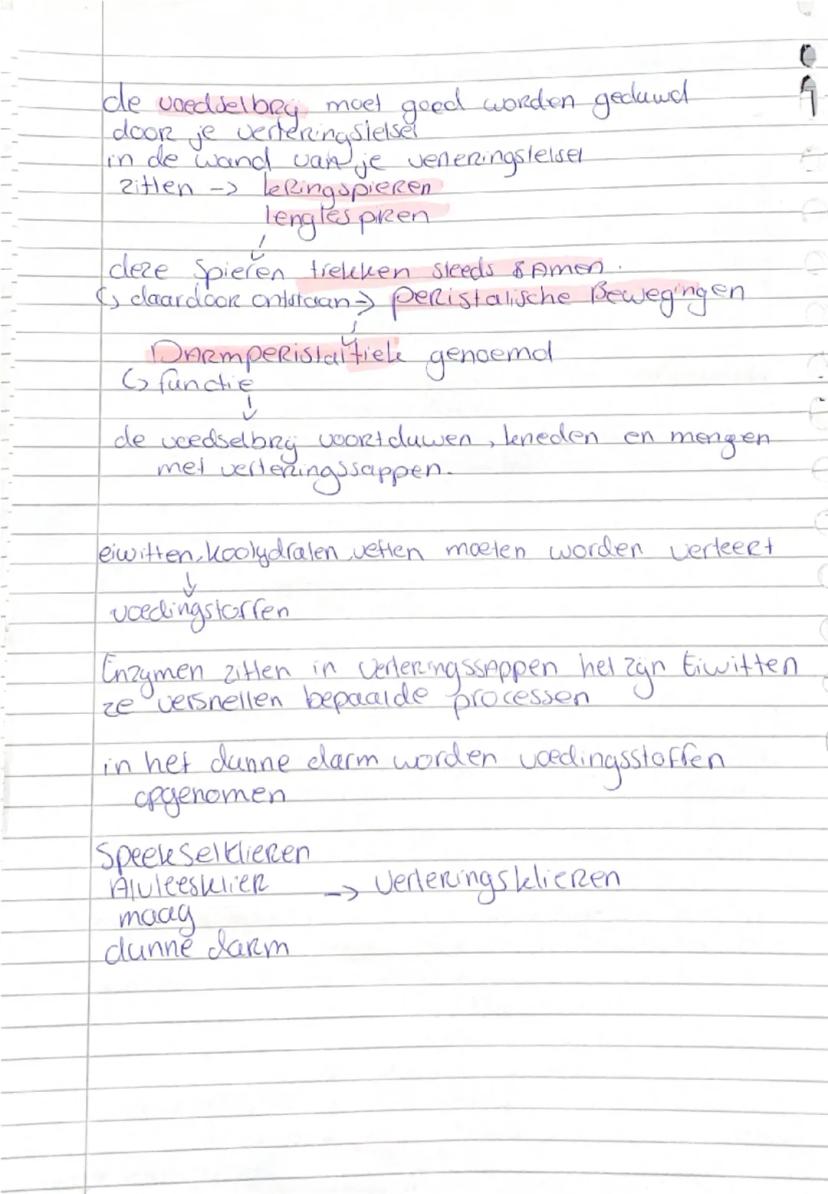 de voedselbrij moet goed worden geduwd
door je verteringstelsel
in de wand van je verteringstelsel
zitten -> kringspieren
lengtespieren
deze spieren trekken steeds samen.
↳ daardoor ontstaan -> peristalische Bewegingen
Darmperistaltiek genoemd
↳ functie
de voedselbrij voortduwen, kneden en mengen
met verteringssappen.
eiwitten, koolydraten, vetten moeten worden verteert
voedingstoffen
Enzymen zitten in verteringssappen het zijn Eiwitten
ze versnellen bepaalde processen
in het dunne darm worden voedingsstoffen
opgenomen
Speekselklieren
Alvleesklier -> verteringsklieren
maag
dunne darm